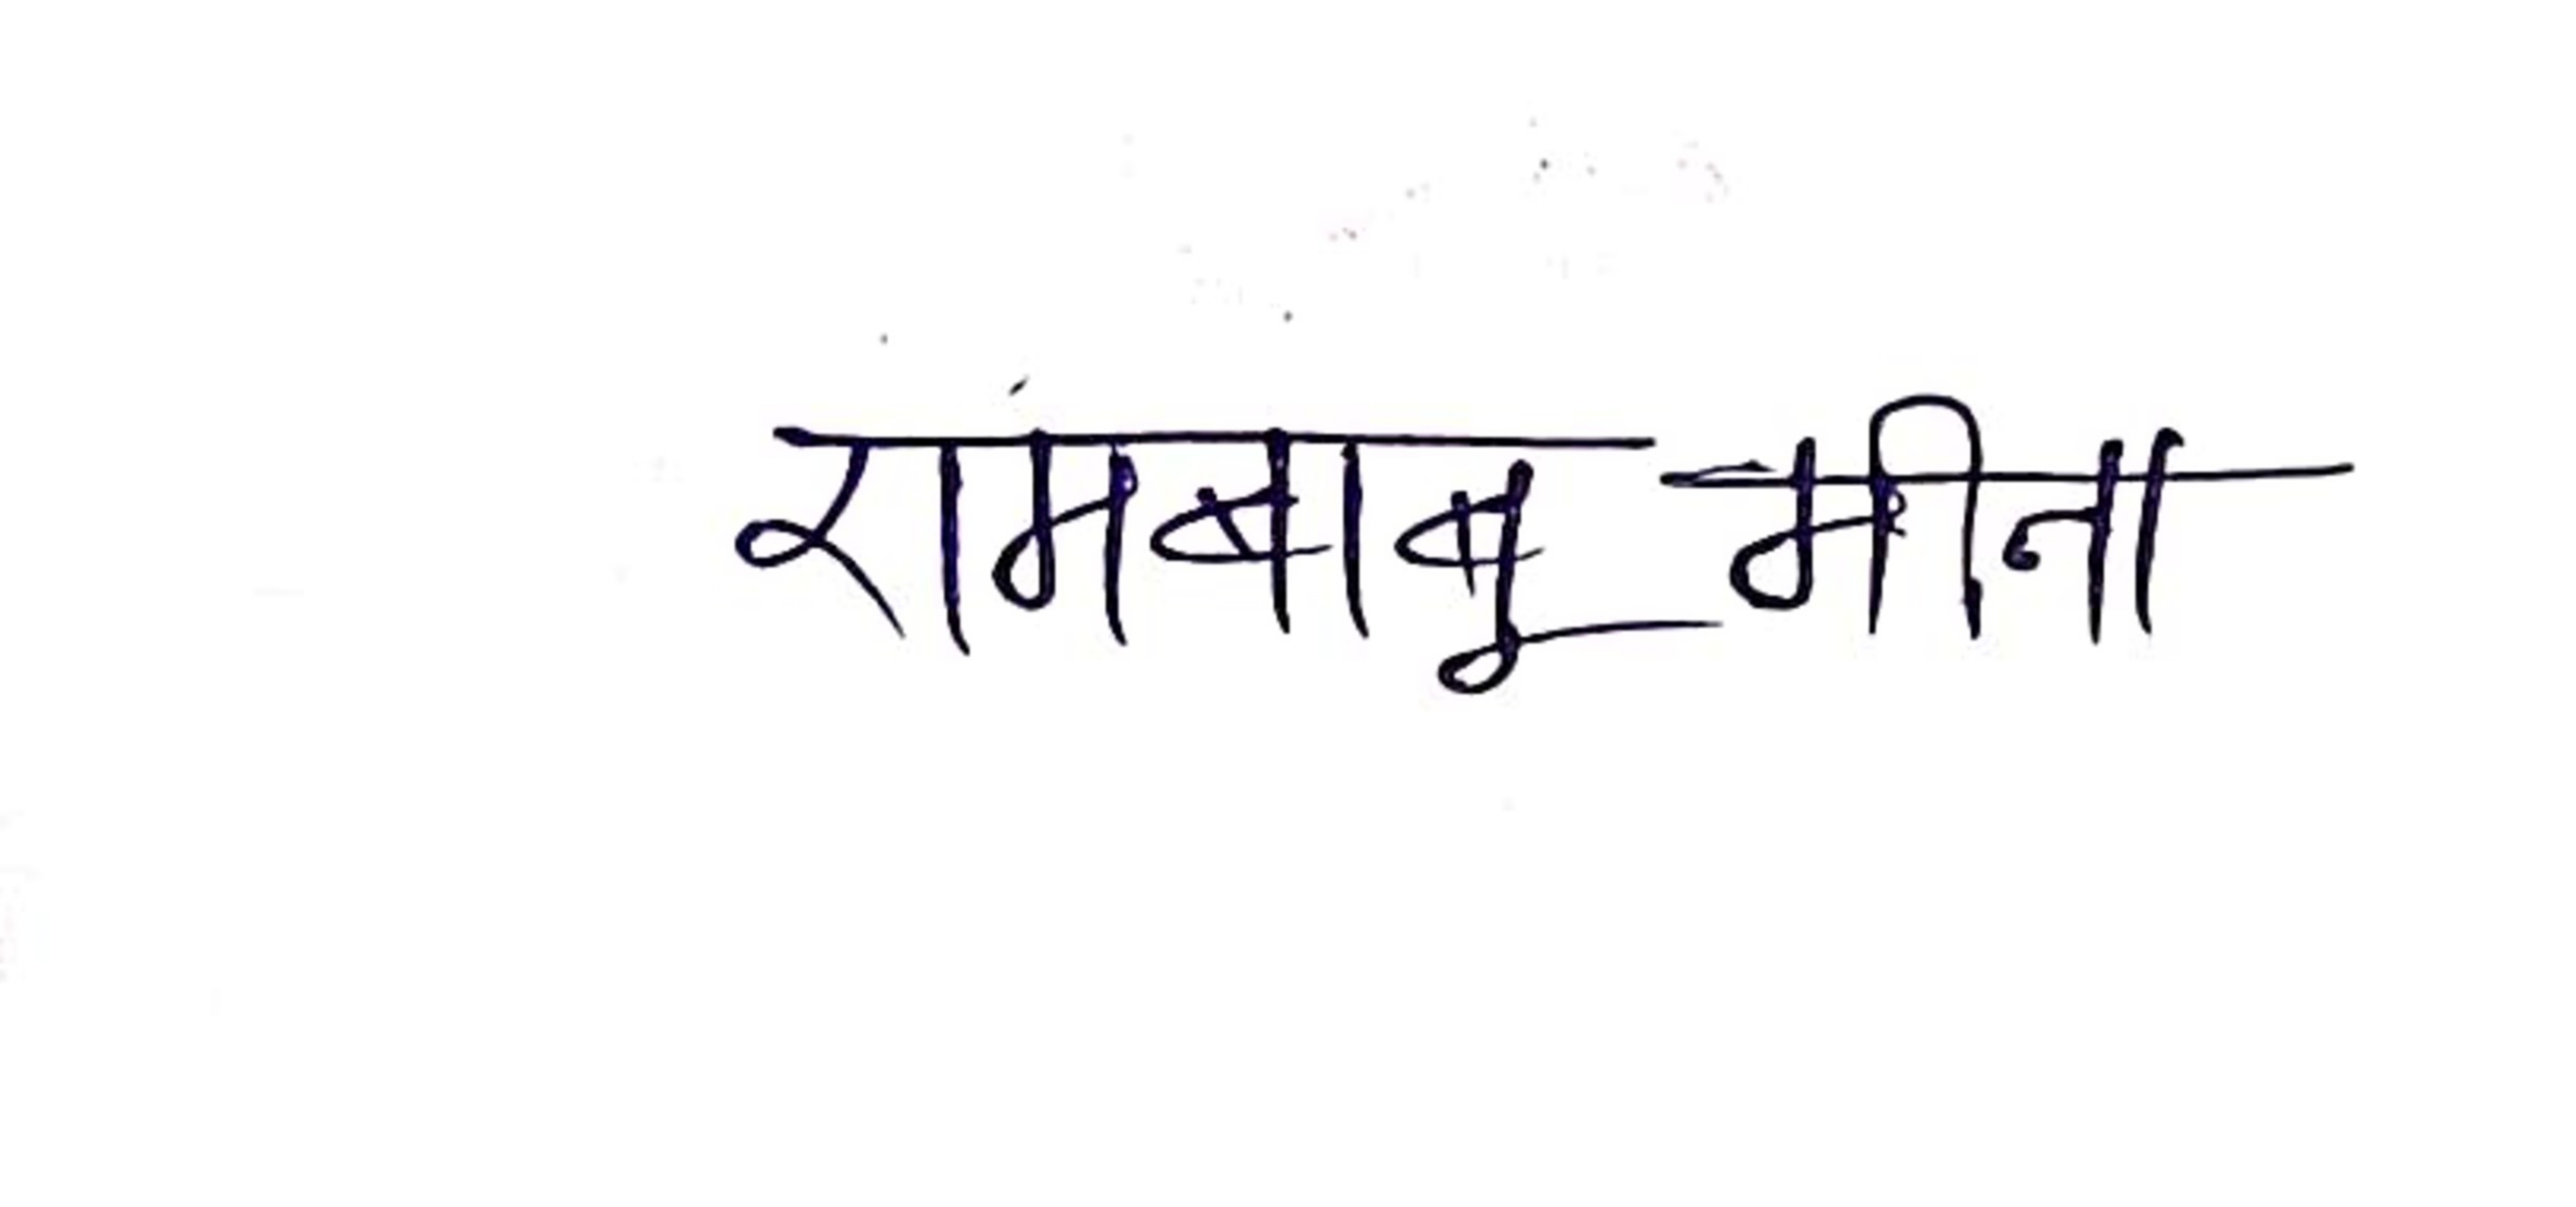 रामबाबू मीना